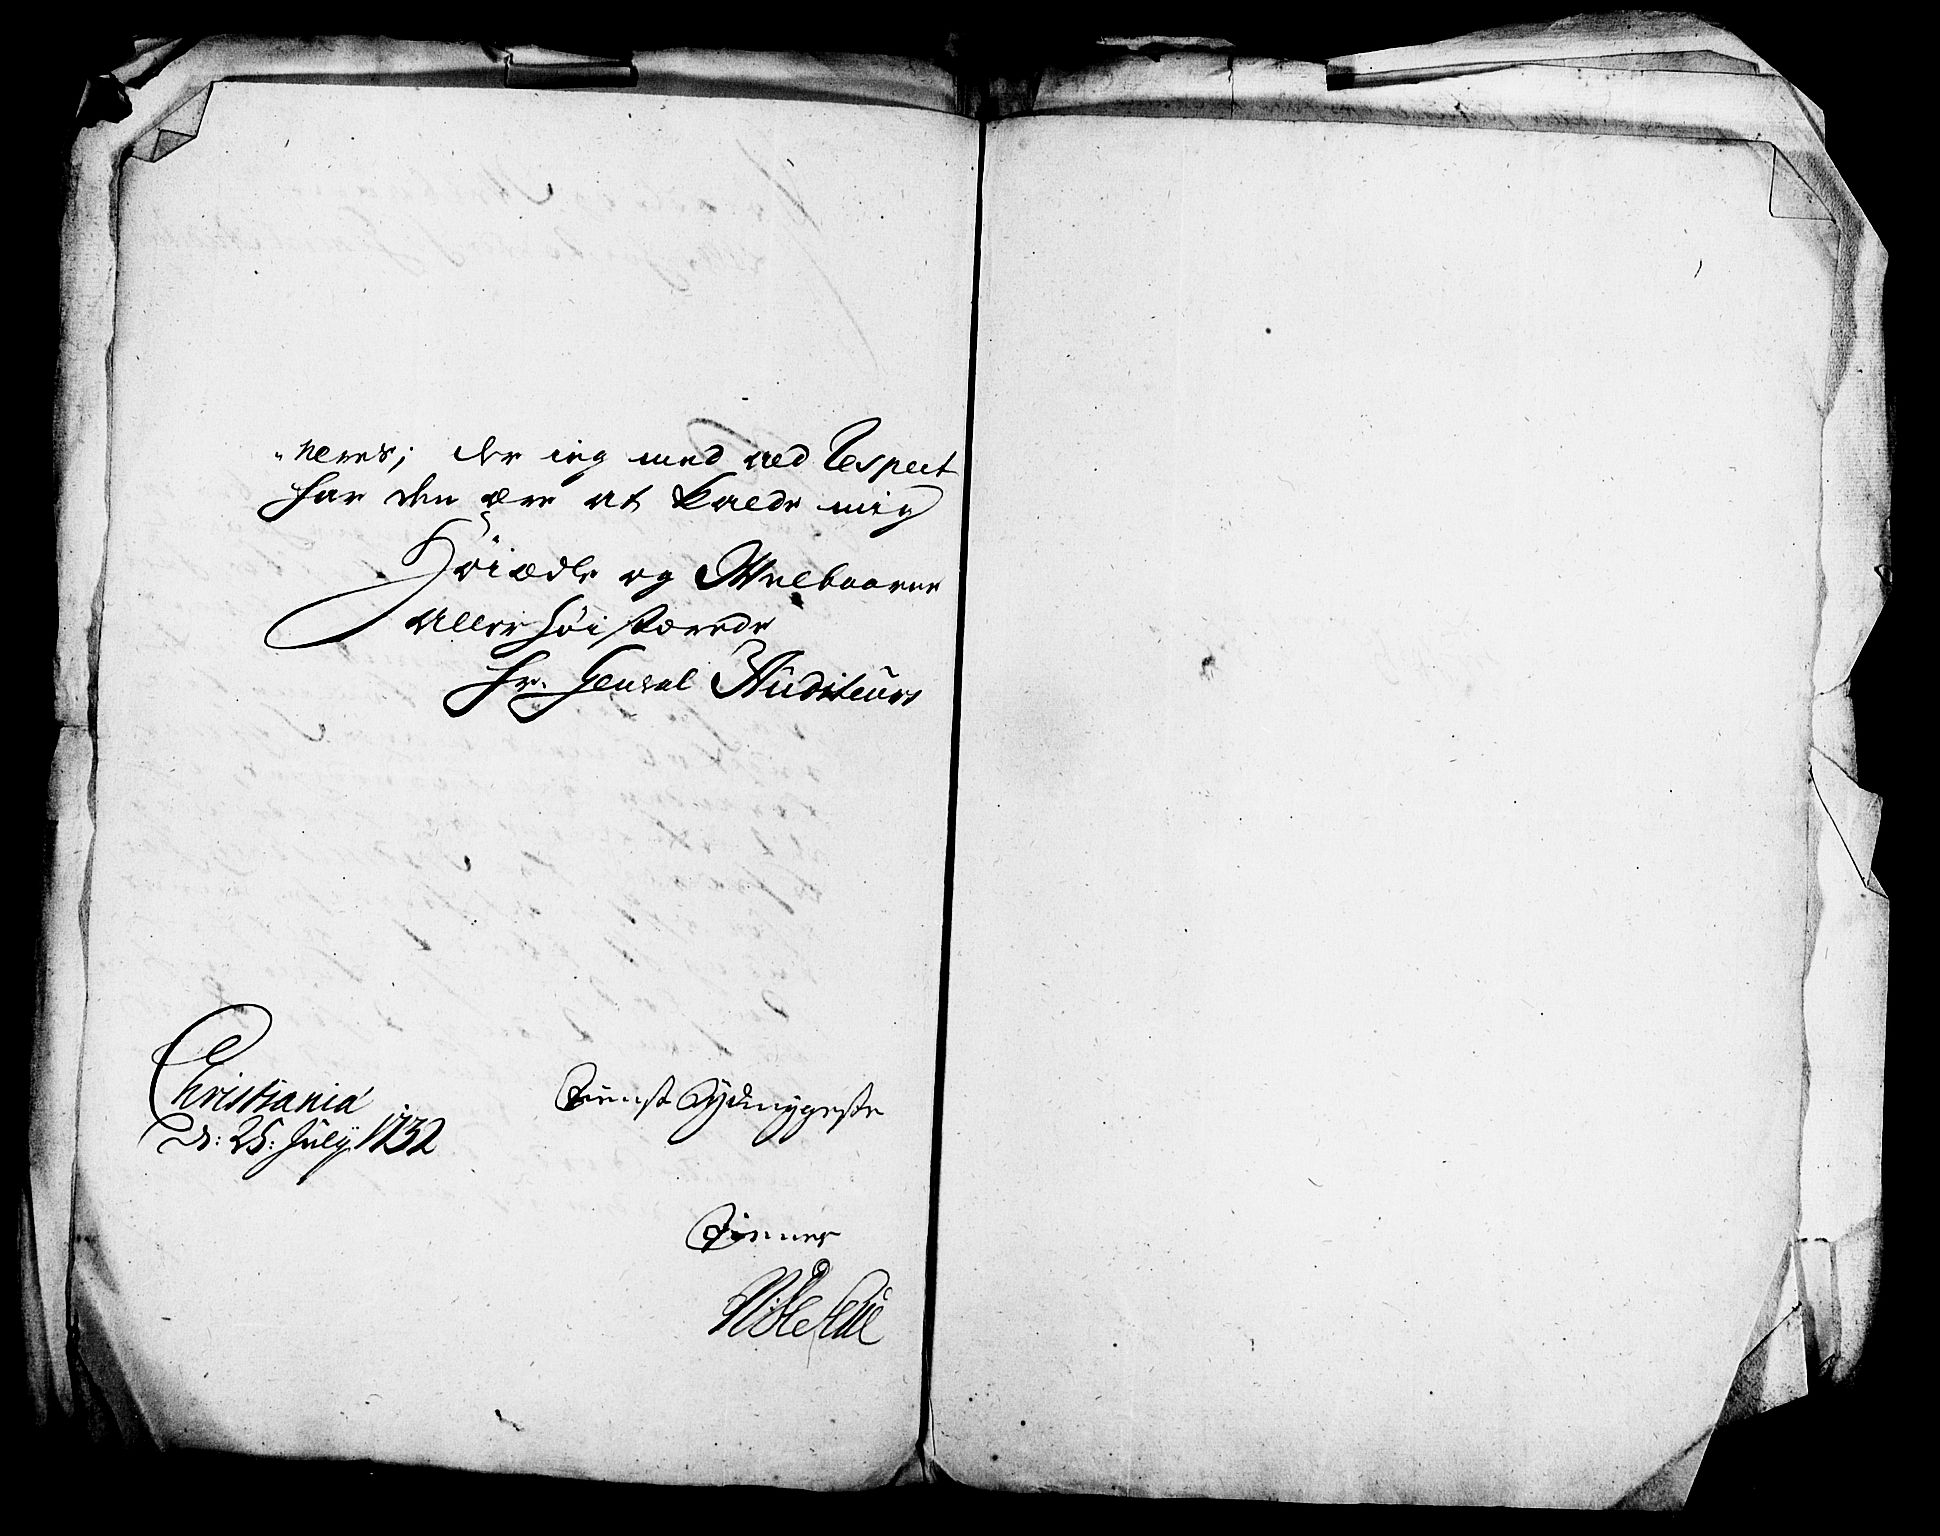 neres; der ieg med ald Respect
har den ære at kalde mig
Höiædle og Welbaarne
Allerhöistærede
Hr. General Auditeürs
Christiania
d: 25: Jülÿ 1732
Tienst Skyldnygeste
Tienner